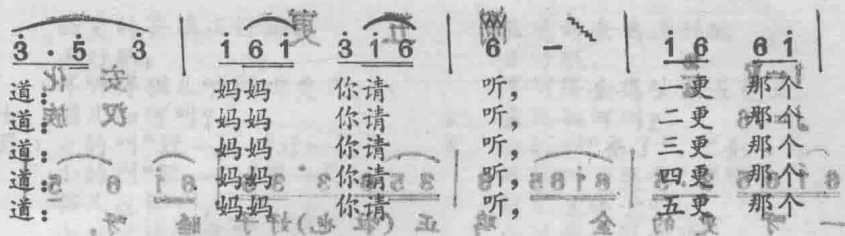 3̇ . 5̇ 3̇ | i 6 i 3̇ i 6 | 6 - | i 6 6 i |
道： 妈妈 你请 听， 一更 那个
道： 妈妈 你请 听， 二更 那个
道： 妈妈 你请 听， 三更 那个
道： 妈妈 你请 听， 四更 那个
道： 妈妈 你请 听， 五更 那个